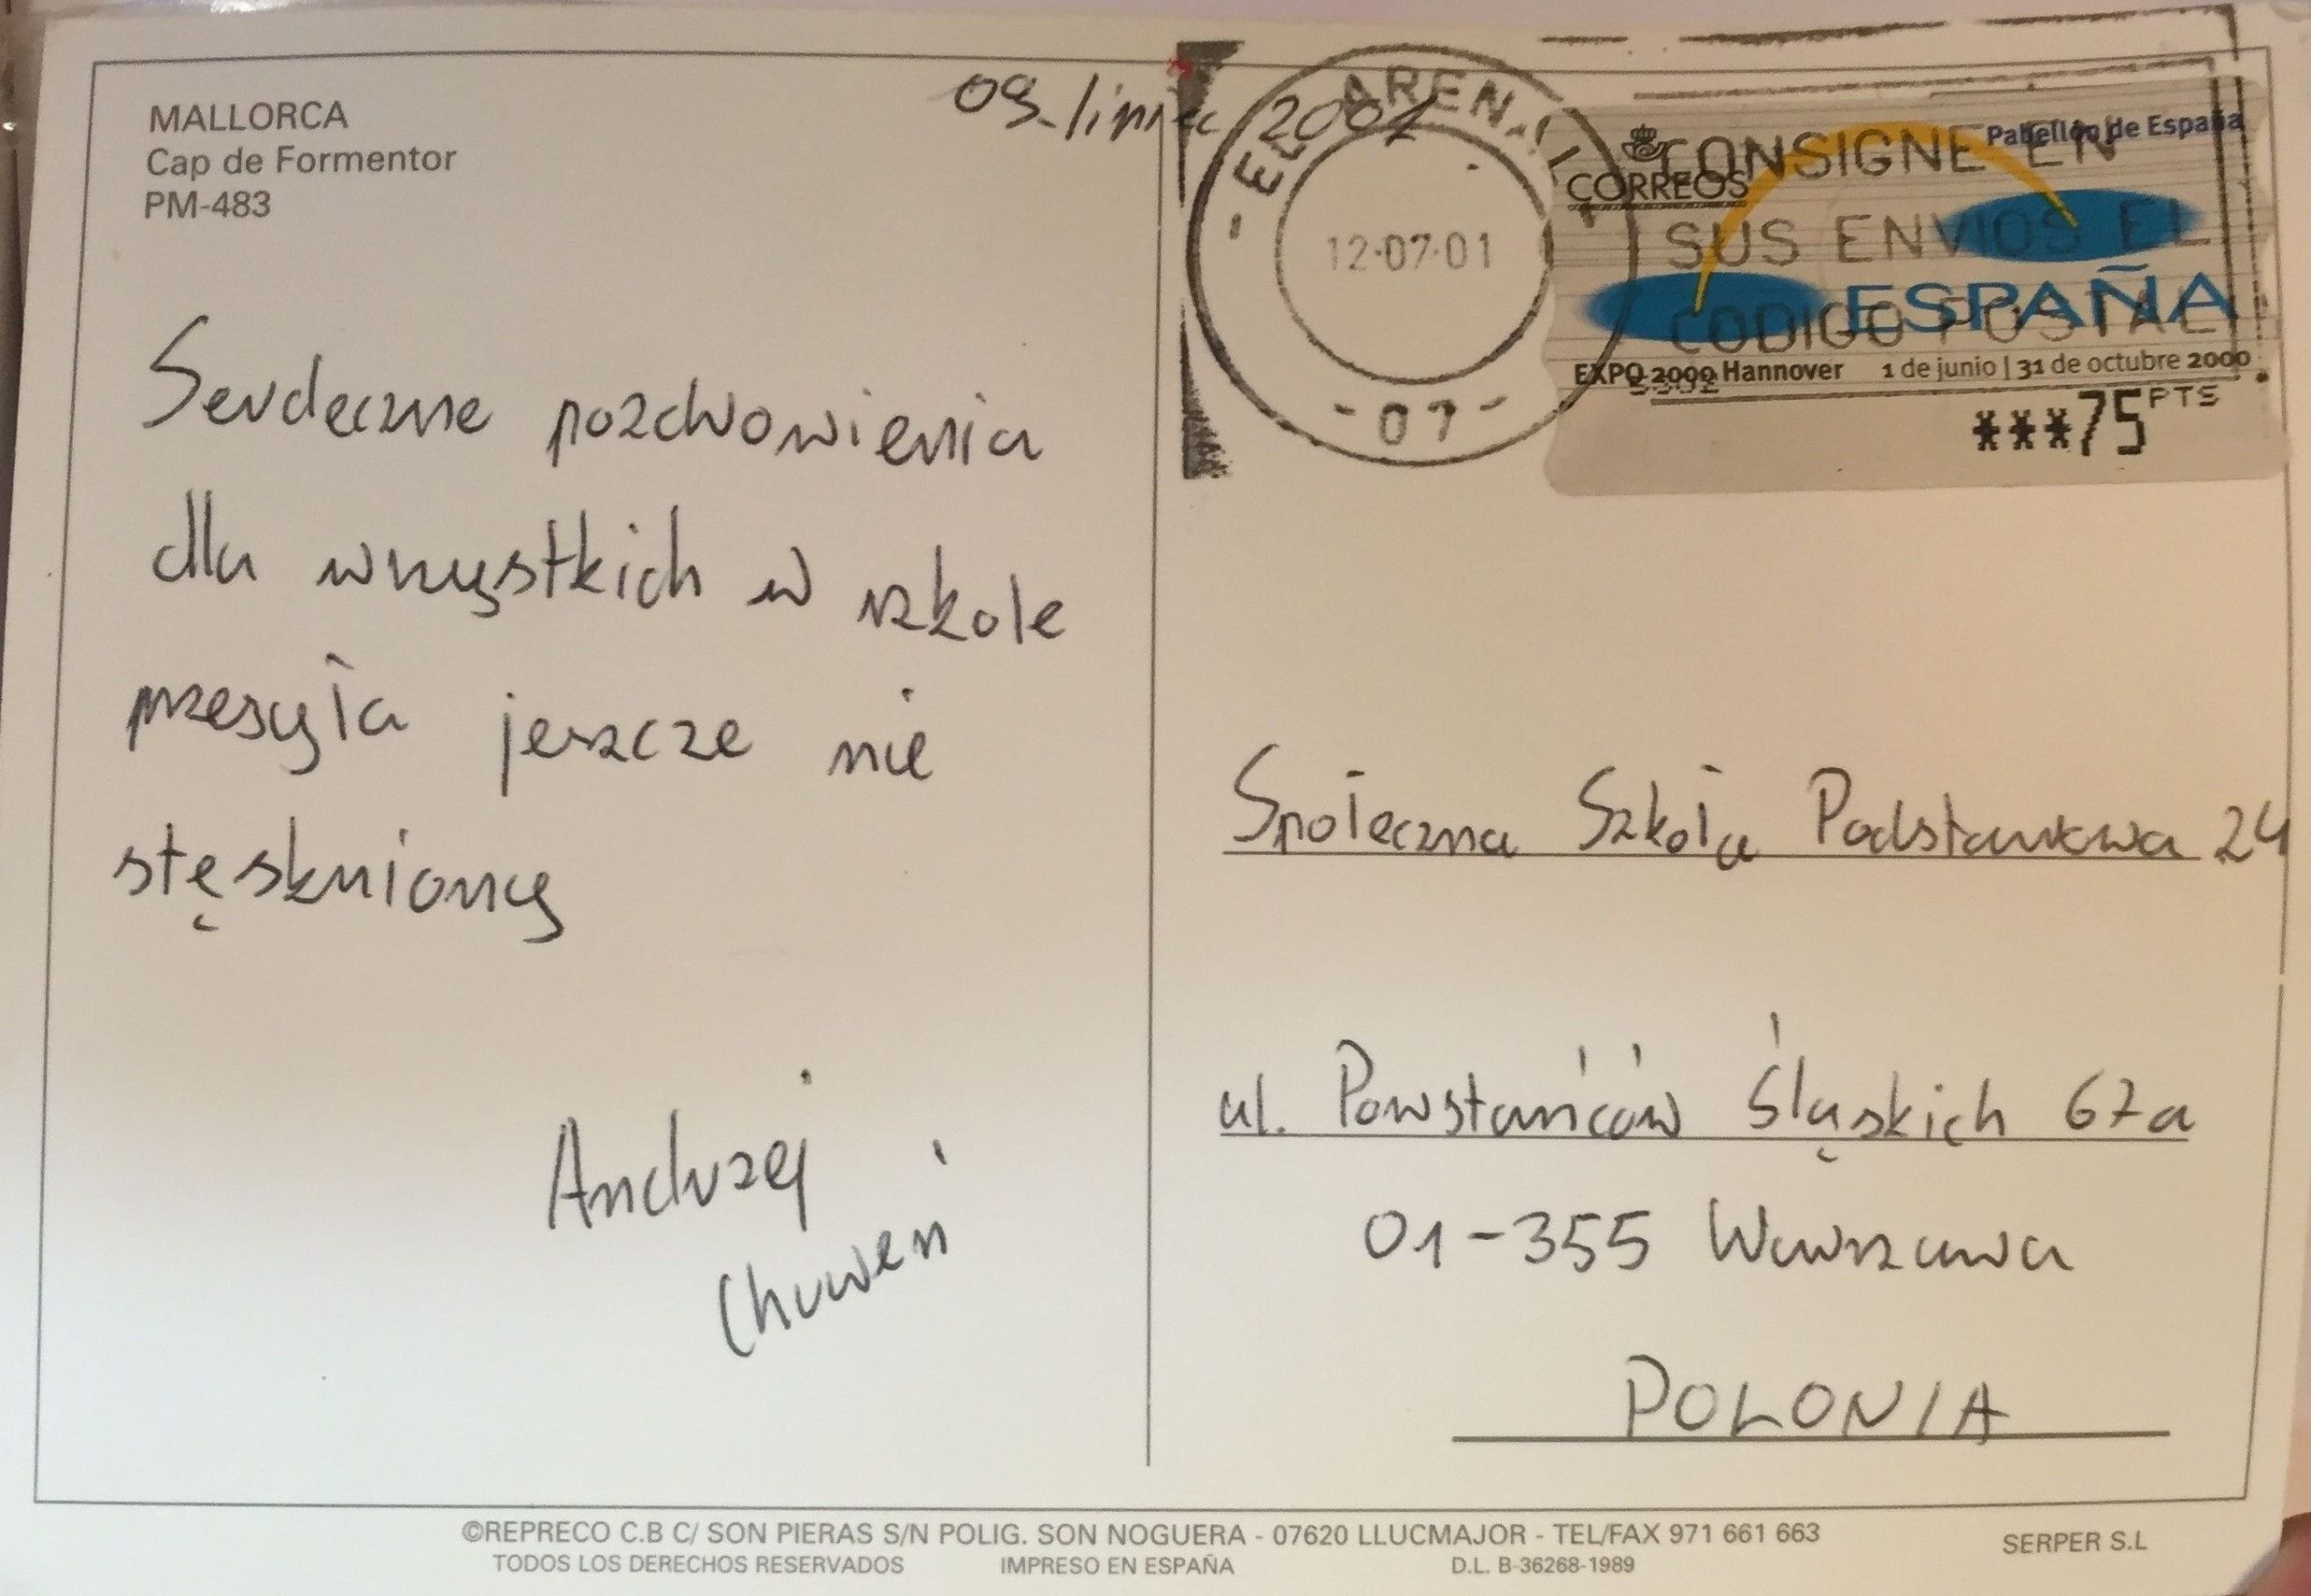 MALLORCA
Cap de Formentor
PM-483
09 lipiec 2001
Serdeczne pozdrowienia
dla wszystkich w szkole
przesyła jeszcze nie
stęskniony
Andrzej
EL ARENAL
12·07·01
- 07 -
CONSIGNE EN
SUS ENVIOS EL
CODIGO POSTAL
Pabellón de España
CORREOS
ESPAÑA
EXPO 2000 Hannover 1 de junio | 31 de octubre 2000
***75 PTS
Społeczna Szkoła Podstawowa 24
ul. Powstańców Śląskich 67a
01-355 Warszawa
POLONIA
©REPRECO C.B C/ SON PIERAS S/N POLIG. SON NOGUERA - 07620 LLUCMAJOR - TEL/FAX 971 661 663
TODOS LOS DERECHOS RESERVADOS IMPRESO EN ESPAÑA D.L. B-36268-1989
SERPER S.L